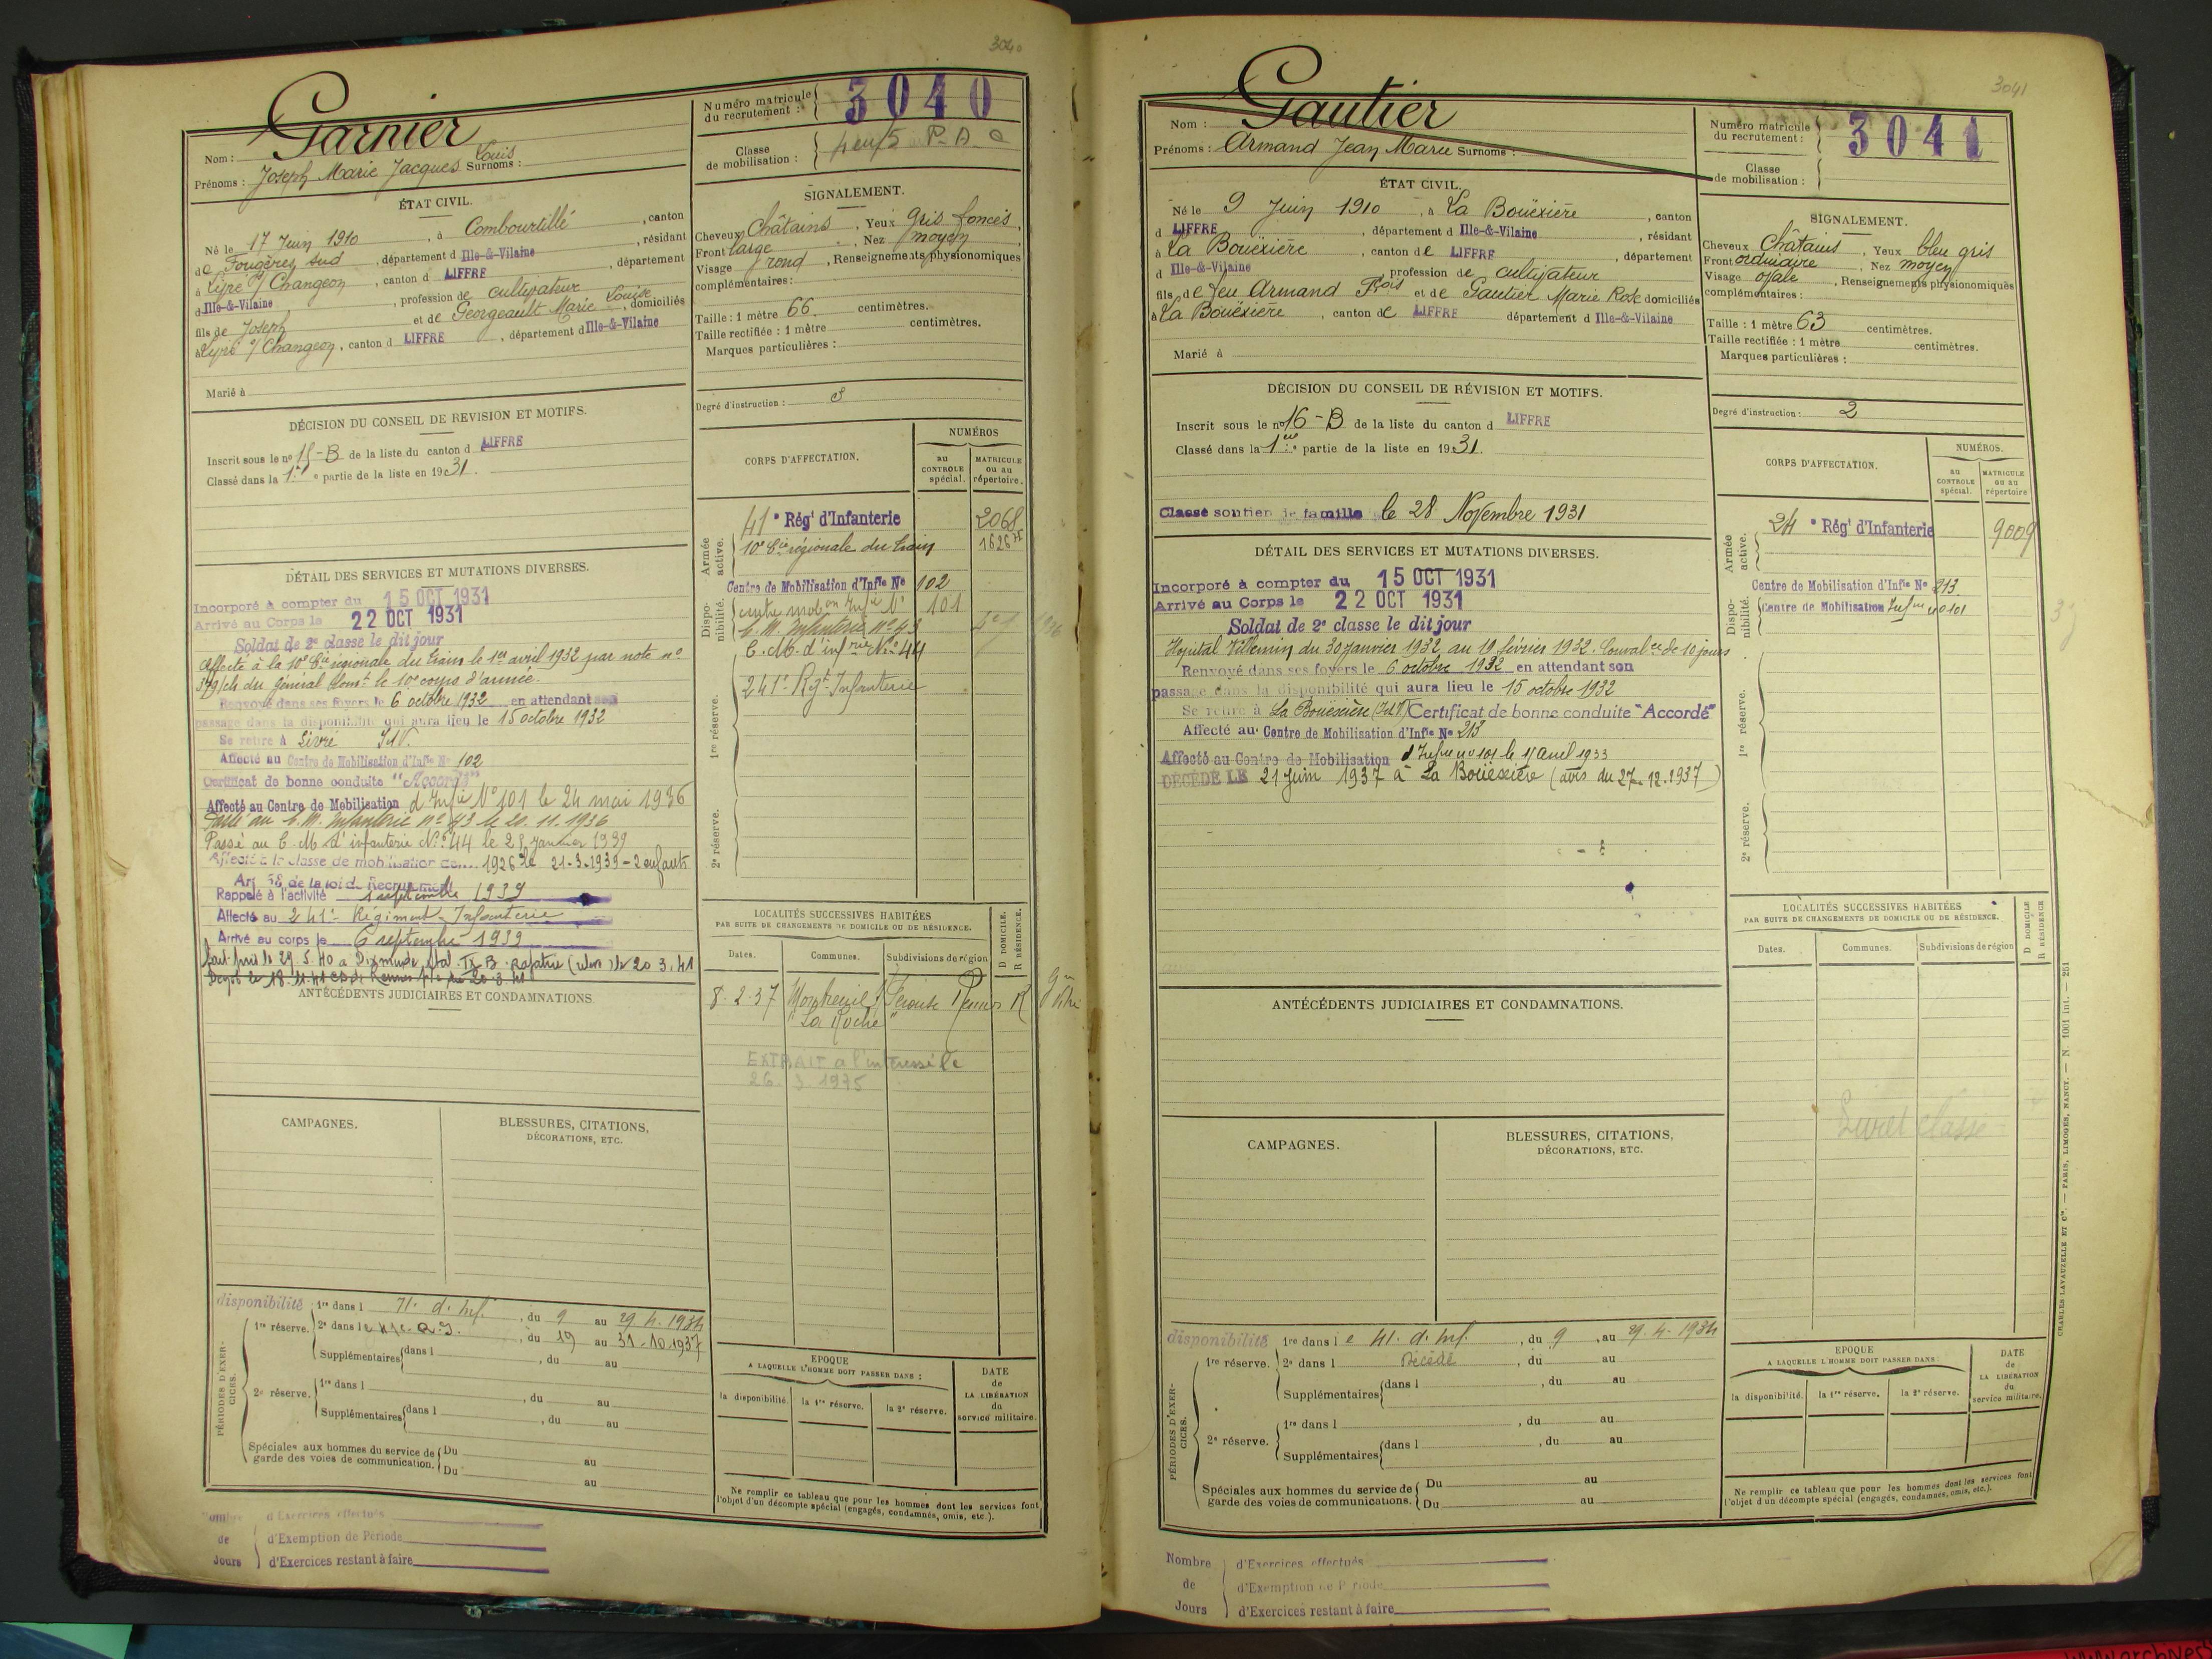 3040
Garnier
Nom :
Prénoms : Joseph Marie Jacques Louis Surnoms :
Numéro matricule du recrutement : 3040
Classe de mobilisation :
ÉTAT CIVIL.
Né le 17 Juin 1910, à Combourtillé, canton
de Fougères sud, département d Ille-&-Vilaine, résidant
à Livré s/ Changeon, canton d LIFFRE, département
d Ille-&-Vilaine, profession de cultivateur
fils de Joseph et de Georgeault Marie Louise, domiciliés
à Livré s/ Changeon, canton d LIFFRE, département d Ille-&-Vilaine
Marié à
SIGNALEMENT.
Cheveux Châtains, Yeux gris foncés,
Front large, Nez moyen,
Visage rond, Renseignements physionomiques
complémentaires :
Taille : 1 mètre 66 centimètres.
Taille rectifiée : 1 mètre centimètres.
Marques particulières :
Degré d'instruction :
DÉCISION DU CONSEIL DE REVISION ET MOTIFS.
Inscrit sous le no 15-B de la liste du canton d LIFFRE
Classé dans la 1re partie de la liste en 1931.
DÉTAIL DES SERVICES ET MUTATIONS DIVERSES.
Incorporé à compter du 15 OCT 1931
Arrivé au Corps le 22 OCT 1931
Soldat de 2e classe le dit jour
Affecté à la 10e Cie régionale du train le 1er avril 1932 par note no
du général Comt le 10e corps d'armée.
Renvoyé dans ses foyers le 6 octobre 1932 en attendant son
passage dans la disponibilité qui aura lieu le 15 octobre 1932
Se retire à Livré I&V.
Affecté au Centre de Mobilisation d'Infie No 102
Certificat de bonne conduite "Accordé"
Affecté au Centre de Mobilisation d'Infie No 101 le 24 mai 1936
Passé au C. M. Infanterie no 43 le 20.11.1936
Passé au C. M. d'infanterie No 44 le 25 Janvier 1939
Affecté à la classe de mobilisation de 1926 le 21-3-1939 - 2 enfants
Art 58 de la loi de Recrutement
Rappelé à l'activité 1 septembre 1939
Affecté au 241e Régiment Infanterie
Arrivé au corps le 6 septembre 1939
Fait pris le 29.5.40 à Dixmude Stal. IX B. Rapatrié le 20.3.41
ANTÉCÉDENTS JUDICIAIRES ET CONDAMNATIONS.
CAMPAGNES.
BLESSURES, CITATIONS, DÉCORATIONS, ETC.
CORPS D'AFFECTATION.
NUMÉROS
au CONTROLE spécial.
MATRICULE ou au répertoire.
Armée active.
41e Régt d'Infanterie 2068
10e Cie régionale du train 1626
Disponibilité.
Centre de Mobilisation d'Infie No 102
centre mobon Infie No 101
C. M. Infanterie no 43
C. M. d'infrie No 44
1re réserve.
241e Rgt Infanterie
2e réserve.
LOCALITÉS SUCCESSIVES HABITÉES
PAR SUITE DE CHANGEMENTS DE DOMICILE OU DE RÉSIDENCE.
Dates. Communes. Subdivisions de région
D DOMICILE. R RÉSIDENCE.
8-2-37 Montreuil s/ Pérouse Rennes R
"La Roche"
EXTRAIT à l'intéressé le
26. 3. 1975
PÉRIODES D'EXERCICES.
disponibilité 1re dans l 71e d'Inf., du 9 au 29.4.1934
1re réserve. 2e dans le, du 19 au 31-10-1937
Supplémentaires dans l, du au
2e réserve. 1re dans l, du au
Supplémentaires dans l, du au
Spéciales aux hommes du service de garde des voies de communication. Du au
Du au
EPOQUE
A LAQUELLE L'HOMME DOIT PASSER DANS :
la disponibilité. la 1re réserve. la 2e réserve.
DATE de LA LIBÉRATION du service militaire.
Ne remplir ce tableau que pour les hommes dont les services font
l'objet d'un décompte spécial (engagés, condamnés, omis, etc.).
Nombre de Jours
d'Exercices effectués
d'Exemption de Période
d'Exercices restant à faire
3041
Gautier
Nom :
Prénoms : Armand Jean Marie Surnoms :
Numéro matricule du recrutement : 3041
Classe de mobilisation :
ÉTAT CIVIL.
Né le 9 Juin 1910, à La Bouëxière, canton
d LIFFRE, département d Ille-&-Vilaine, résidant
à La Bouëxière, canton de LIFFRE, département
d Ille-&-Vilaine, profession de cultivateur
fils de feu Armand Fois et de Gautier Marie Rose domiciliés
à La Bouëxière, canton de LIFFRE département d Ille-&-Vilaine
Marié à
SIGNALEMENT.
Cheveux Châtains, Yeux bleu gris
Front ordinaire, Nez moyen
Visage ovale, Renseignements physionomiques
complémentaires :
Taille : 1 mètre 63 centimètres.
Taille rectifiée : 1 mètre centimètres.
Marques particulières :
Degré d'instruction : 2
DÉCISION DU CONSEIL DE RÉVISION ET MOTIFS.
Inscrit sous le no 16-B de la liste du canton d LIFFRE
Classé dans la 1ère partie de la liste en 1931.
Classé soutien de famille le 28 Novembre 1931
DÉTAIL DES SERVICES ET MUTATIONS DIVERSES.
Incorporé à compter du 15 OCT 1931
Arrivé au Corps le 22 OCT 1931
Soldat de 2e classe le dit jour
Hopital Villemin du 30 janvier 1932 au 19 février 1932. Convalce de 10 jours
Renvoyé dans ses foyers le 6 octobre 1932 en attendant son
passage dans la disponibilité qui aura lieu le 15 octobre 1932
Se retire à La Bouëxière (I&V) Certificat de bonne conduite "Accordé"
Affecté au Centre de Mobilisation d'Infie No 213
Affecté au Centre de Mobilisation d'Infrie no 101 le 11 avril 1933
DÉCÉDÉ LE 21 Juin 1937 à La Bouëxière (avis du 27-12-1937)
ANTÉCÉDENTS JUDICIAIRES ET CONDAMNATIONS.
CAMPAGNES.
BLESSURES, CITATIONS, DÉCORATIONS, ETC.
CORPS D'AFFECTATION.
NUMÉROS.
au CONTROLE spécial.
MATRICULE ou au répertoire
Armée active.
24e Régt d'Infanterie 9009
Disponibilité.
Centre de Mobilisation d'Infie No 213
Centre de Mobilisation Infrie no 101
1re réserve.
2e réserve.
LOCALITÉS SUCCESSIVES HABITÉES
PAR SUITE DE CHANGEMENTS DE DOMICILE OU DE RÉSIDENCE.
Dates. Communes. Subdivisions de région
D DOMICILE R RÉSIDENCE
Livret classé
PÉRIODES D'EXERCICES.
disponibilité 1re dans le 41e d'Inf., du 9, au 29.4.1934
1re réserve. 2e dans l Décédé, du au
Supplémentaires dans l, du au
2e réserve. 1re dans l, du au
Supplémentaires dans l, du au
Spéciales aux hommes du service de garde des voies de communications. Du au
Du au
EPOQUE
A LAQUELLE L'HOMME DOIT PASSER DANS :
la disponibilité. la 1re réserve. la 2e réserve.
DATE de LA LIBÉRATION du service militaire.
Ne remplir ce tableau que pour les hommes dont les services font
l'objet d'un décompte spécial (engagés, condamnés, omis, etc.).
Nombre de Jours
d'Exercices effectués
d'Exemption de Période
d'Exercices restant à faire
CHARLES-LAVAUZELLE ET Cie. — PARIS, LIMOGES, NANCY. — N. 1001 int. — 251